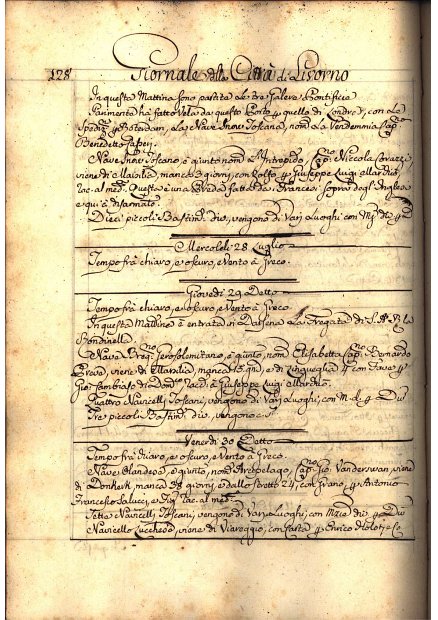 128 Giornale della Città di Livorno
In questa Mattina sono partite le tre Galere Pontificie
Parimente hà fatto Vela da questo Porto p quello di Londra, con la
Spediz. p Roterdam, la Nave Inor Toscana, nom. La Vendemmia Cap.no
Benedetto
Nave Inor Toscano, è giunto nom. L'Intrepido, Cap.no Niccola Corazzi,
viene di Marsilia, manca giorni, con Zolfo, p Giuseppe Luigi
rac. al med. Questo è una Preda fatta da Francesi sopra degl'Inglesi
e quì disarmato.
Dieci piccoli Bastim. div. vengono di Varj Luoghi, con M.
Mercoledì 28 Luglio
Tempo frà chiaro, e oscuro, e Vento à Greco.
Giovedì 29 Detto
Tempo frà chiaro, e oscuro, e Vento à Greco
In questa Mattina è entrata in Darsena La Fregata di S. A. Rle
Rondinella
Nave Gerosolimitano, è giunto, nom. Elisabetta Cap.no Bernardo
viene di Marsilia, manca 15 gni, e di 4 con Fave p
Gio. rac. di Giuseppe Luigi
Quattro Navicelli Toscani, vengono di Varj Luoghi, con M. p Div.
Tre piccoli Bastim. div. vengono
Venerdì 30 Detto
Tempo frà chiaro, e oscuro, e Vento à Greco.
Nave Olandesa, è giunto, nom. Arcipelago, Cap.no Gio. Vanderswan, viene
di Donkerk, manca 38 giorni, e dallo Stretto 24, con Grano, p Antonio
Francesco Salucci, e Fig. rac. al med.
Sette Navicelli Toscani, vengono di Varj Luoghi, con M.zie p Div.
Navicello Lucchese, viene di Viareggio, con p Enrico